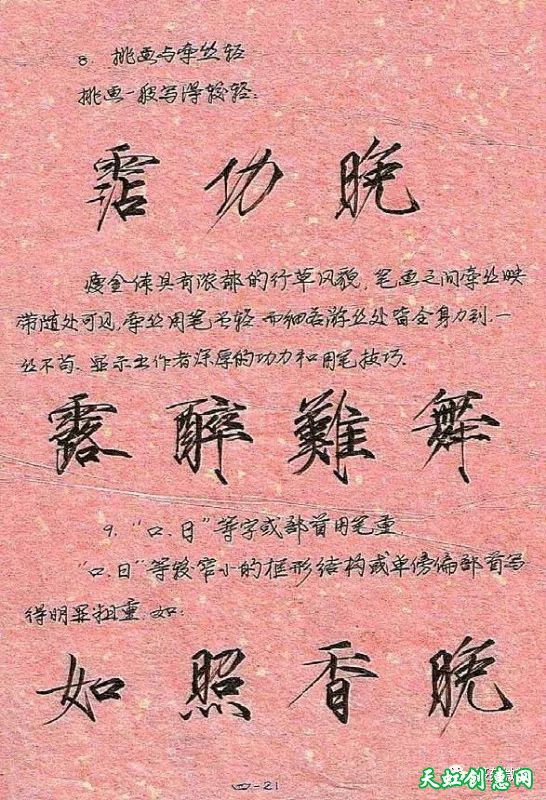 8 挑画与牵丝轻
挑画一般写得较轻：
霑功晚
瘦金体具有浓郁的行草风貌，笔画之间牵丝映
带随处可见，牵丝用笔虽轻而细若游丝处皆全身力到，一
丝不苟、显示出作者深厚的功力和用笔技巧．
露醉難舞
9．“口．日”等字或部首用笔重
“口．日”等较窄小的框形结构或单傍偏部首写
得明显粗重．如：
如照香晚
四-21
天虹创意网